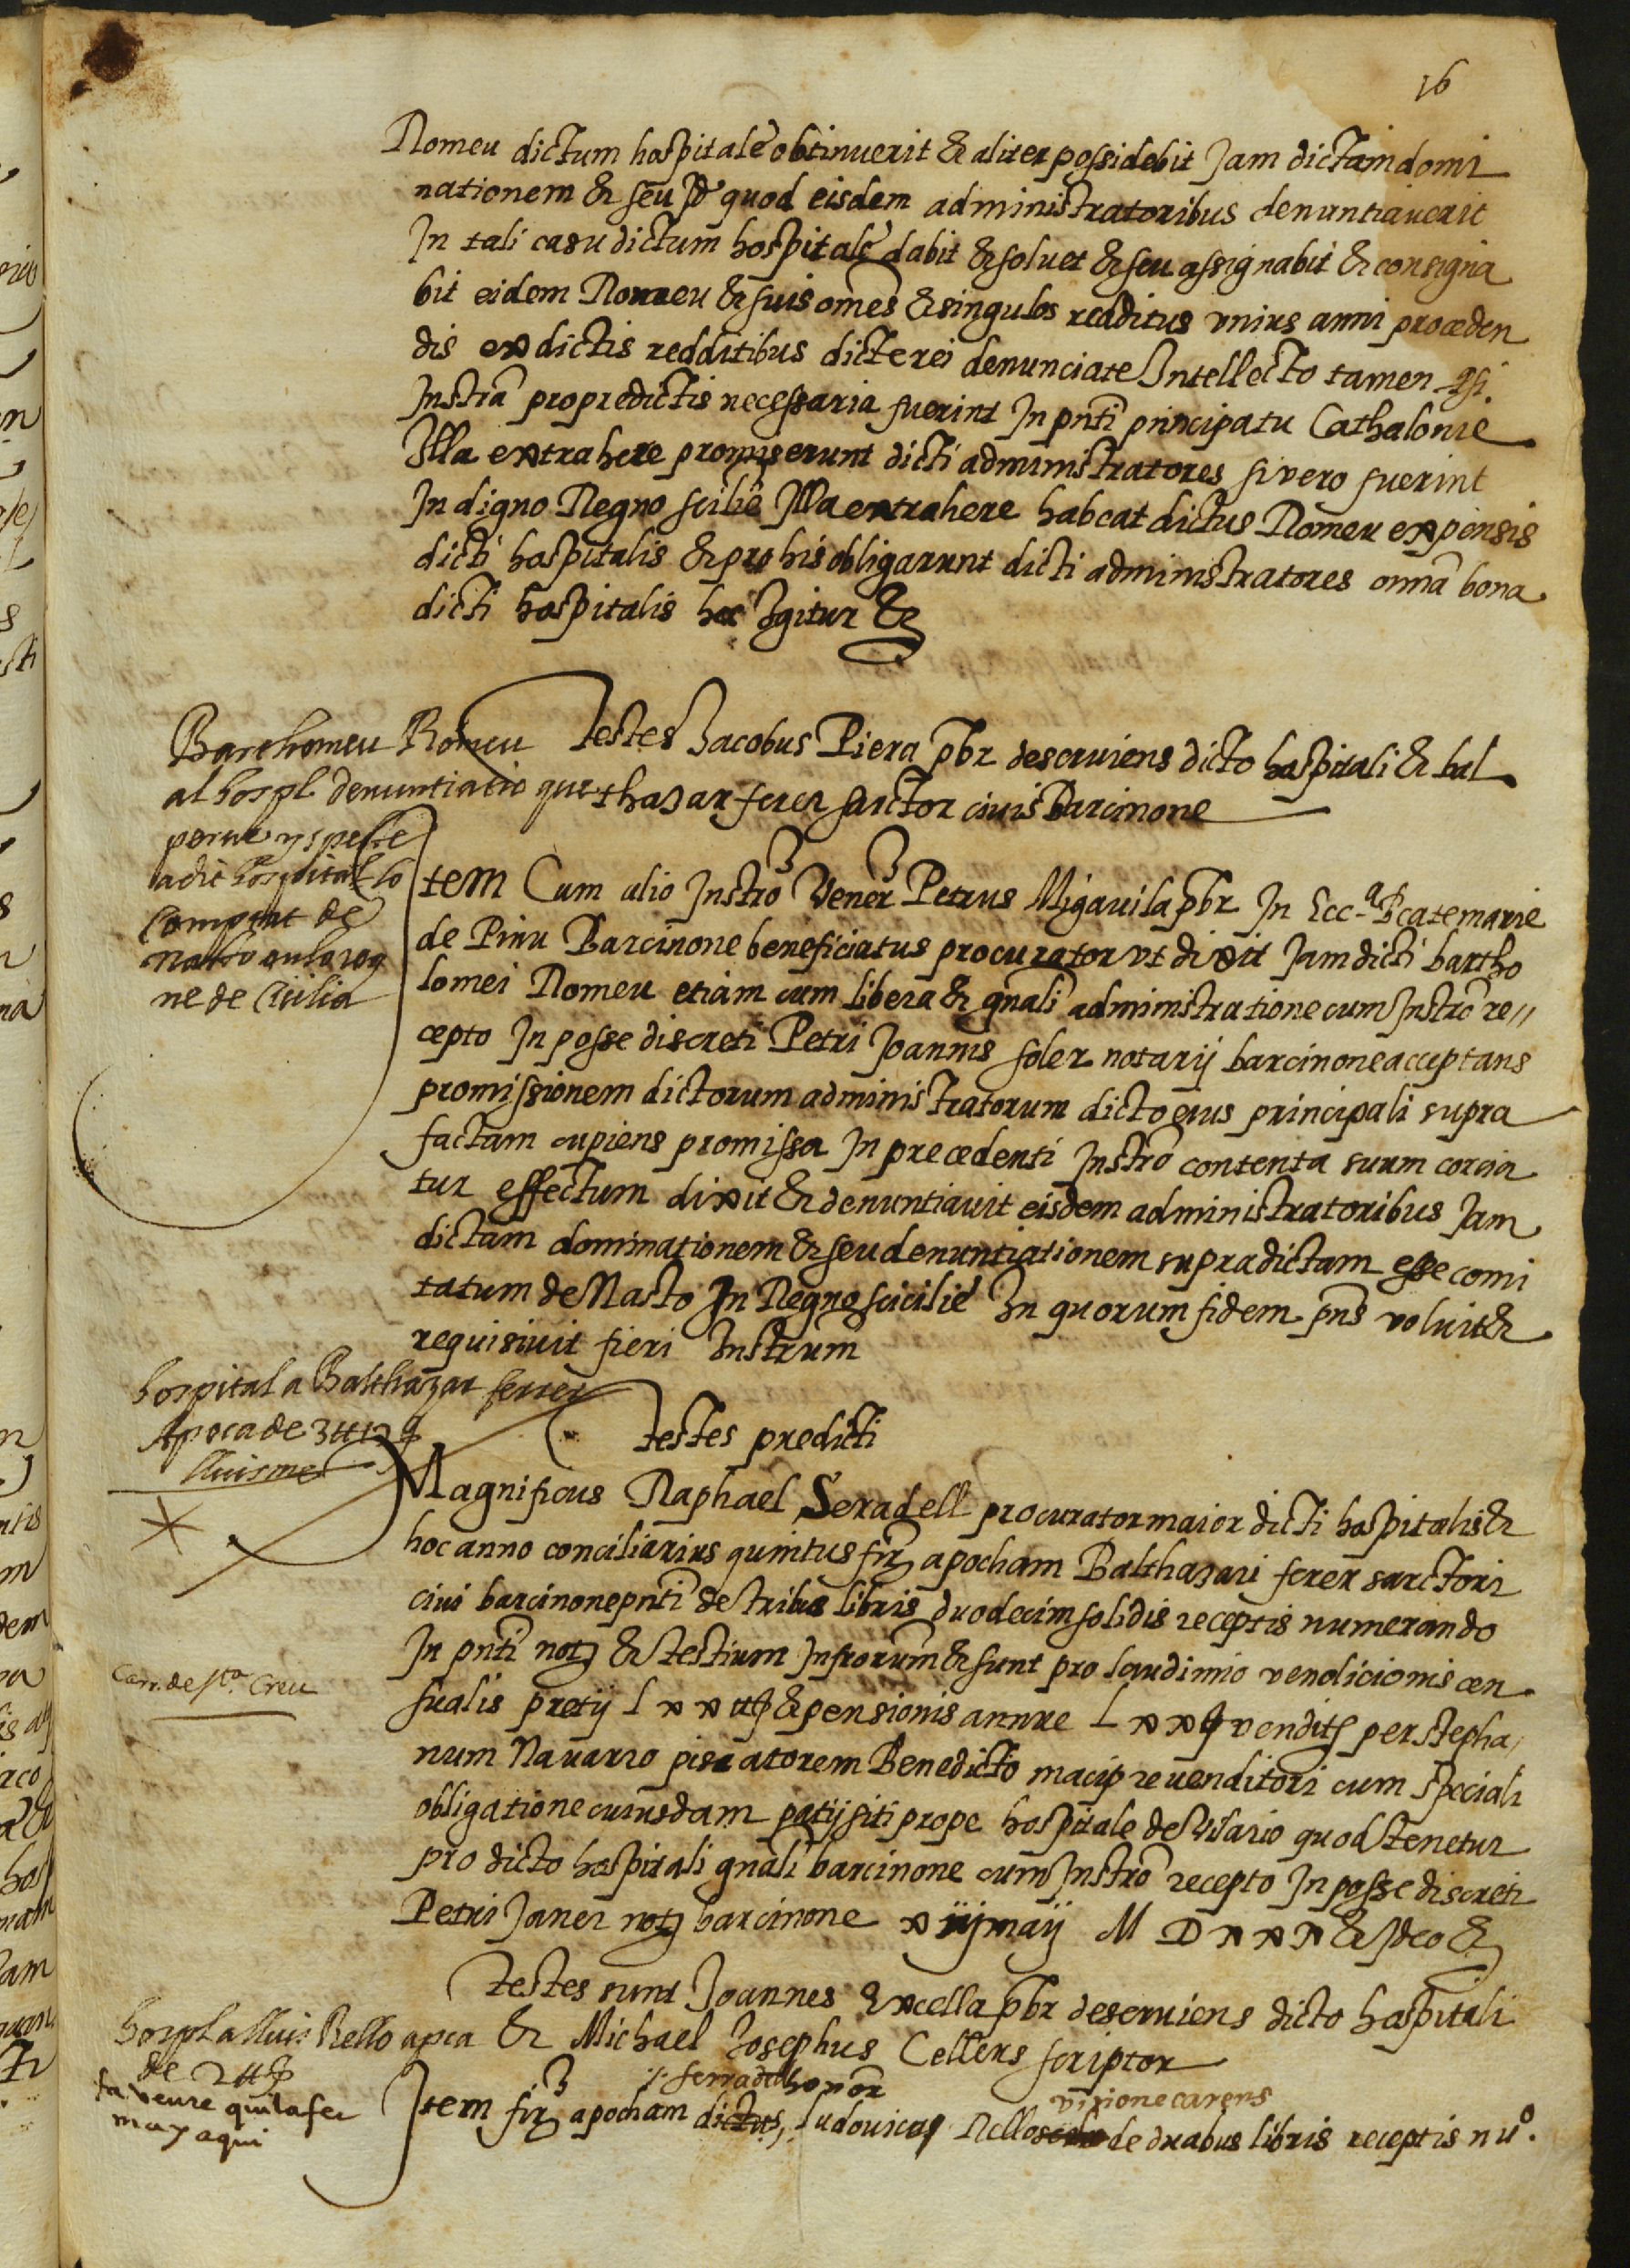 16
Romeu dictum hospitale obtinuerit & aliter possidebit Jam dictam domi
nationem & seu id quod eisdem administratoribus denuntiaverit
In tali casu dictum hospitale dabit & solvet & seu assignabit & consigna
bit eidem Romeu & suis omēs & singulos redditus unius anni proceden
dis ex dictis redditibus dicte rei denunciate Intellecto tamen q si
Instrā pro predictis necessaria fuerint In pn̄ti principatu Cathalonie
Illa extrahere promiserunt dicti administratores si vero fuerint
In digno Regno scilie Illa extrahere habeat dictus Romeu expensis
dicti hospitalis & pro his obligarunt dicti administratores omnā bona
dicti hospitalis hec Igitur &
Barthomeu Romeu
al hospl denuntiatio que
perve y specte
a dit hospital lo
Comptat de
naso en lo reg
ne de Cicilia
Testes Jacobus Piera pbr deserviens dicto hospitali & bal
thazar ferer sarctor civis Barcinone
Item Cum alio Instrō Vener Petrus Migavila pbr In Ecc.a Beate marie
de Pinu Barcinone beneficiatus procurator ut dixit Jam dicti bartho
lomei Romeu etiam cum libera & gnāli administratione cum Instrō re//
cepto In posse discreti Petri Joannis soler notarij barcinone acceptans
promissionem dictorum administratorum dicto eius principali supra
factam cupiens promissa In precedenti Instrō contenta suum sorcia
tur effectum dixit & denuntiavit eisdem administratoribus Jam
dictam dominationem & seu denuntiationem supradictam esse comi
tatum de Nasto In Regno scicilie In quorum fidem pn̄s voluit &
requisivit fieri Instrum
hospital a Balthazar ferrer
Apoca de 3 ₶ 12 s
lluisme
testes predicti
Magnificus Raphael Seradell procurator maior dicti hospitalis &
hoc anno conciliarius quintus fir apocham Balthazari ferer sarctori
civi barcinone pn̄ti de tribus libris duodecim solidis receptis numerando
In pn̄ti not & testium Infrorum & sunt pro laudimio vendicionis cen
sualis pretij L x x ₶ & pensionis annue L x x s vendit per stepha
num Navarro piscatorem Benedicto macip revenditori cum speciali
obligatione cuiusdam patij siti prope hospitale de Vilario quod tenetur
pro dicto hospitali gnāli barcinone cum Instrō recepto In posse discreti
Petri Janer not barcinone x iij maij M D x x x & Ideo &
Carr. de sta. Creu
Testes sunt Joannes Excella pbr deserviens dicto hospitali
& Michael Josephus Cellers scriptor
hospl a lluis Rello apca
de 2 ₶
fa veure qui la fer
may aqui
honor
visione carens
Item fir apocham dictus, Ludovicus Rello de duabus libris receptis nu.o